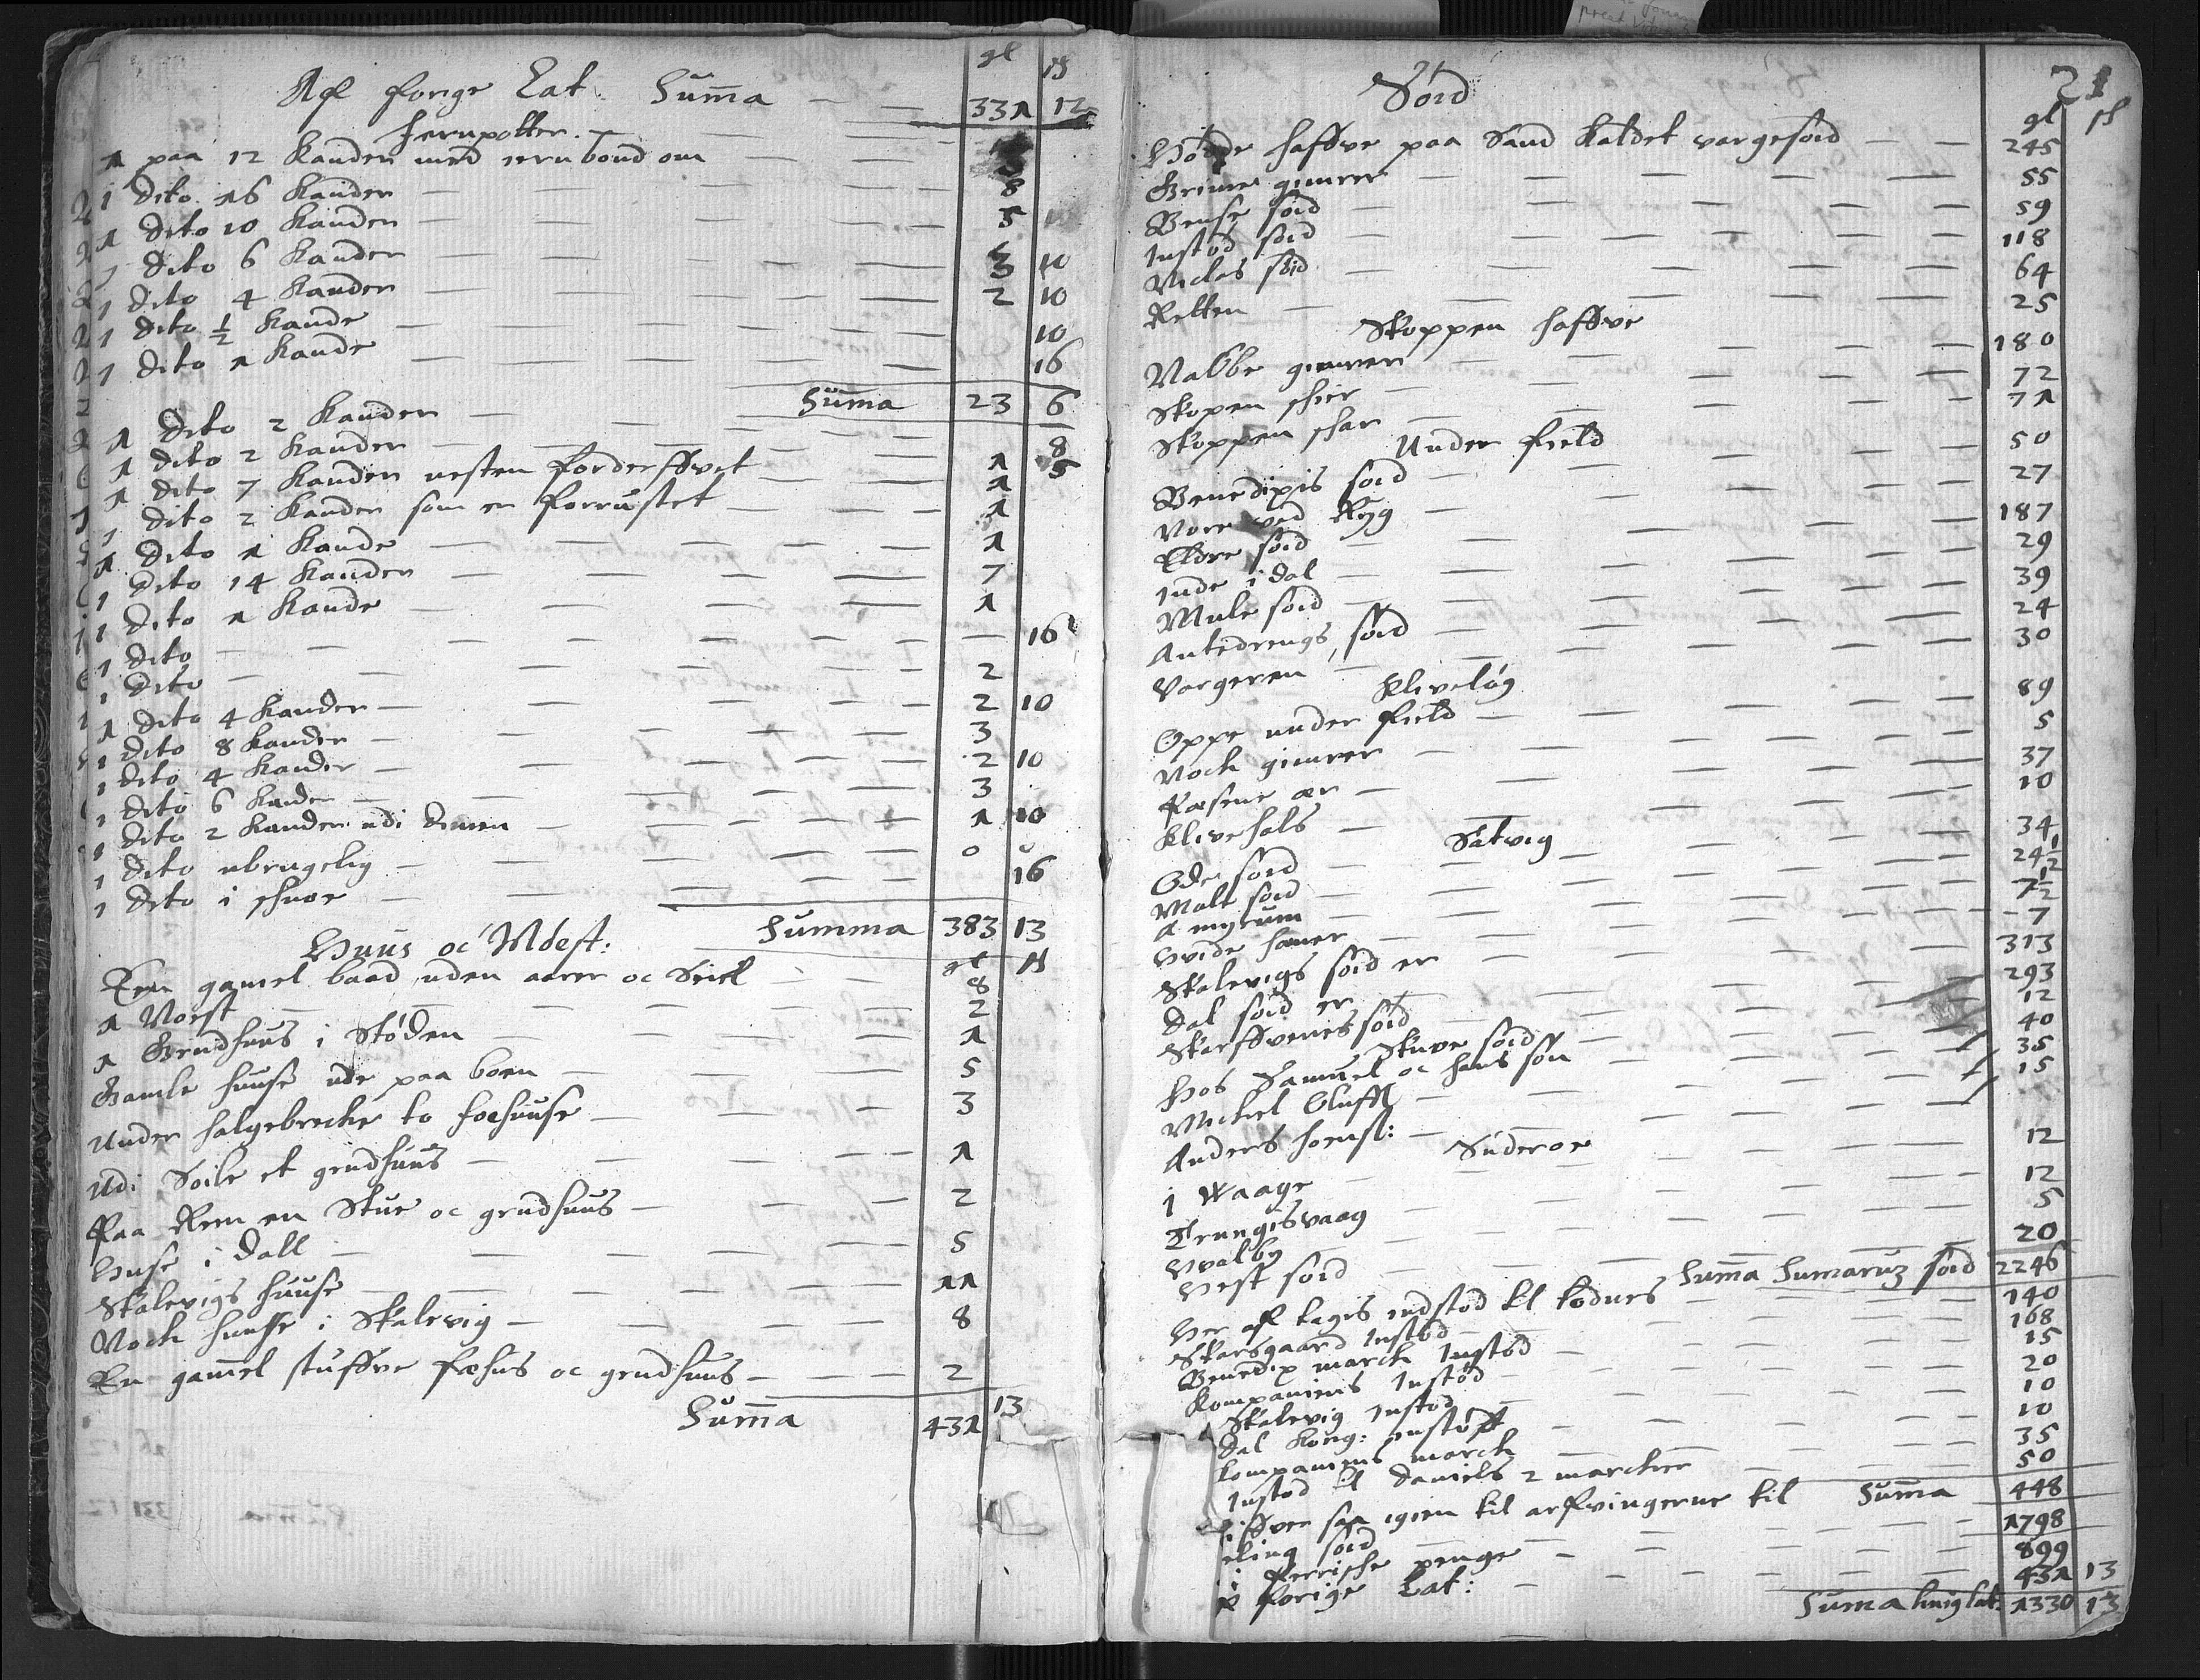 gl ß
Af forige Lat. Summa 331 12
Jernpotter.
1 paa 12 Kander med jern bond om
1 dito 16 Kander 8
1 dito 10 Kander 5
1 dito 6 Kander 3 10
1 dito 4 Kander 2 10
1 dito ½ Kande 10
1 dito 1 Kande 16
Summa 23 6
1 dito 2 Kander 8
1 dito 2 Kander 1 5
1 dito 7 Kander nesten forderffvet 1
1 dito 2 Kander som er forrustet 1
1 dito 1 Kande 1
1 dito 14 Kander 7
1 dito 1 Kande 1
1 dito 16
1 dito 2
1 dito 4 Kander 2 10
1 dito 8 Kander 3
1 dito 4 Kander 2 10
1 dito 6 Kander 3
1 dito 2 Kander udi dimen 1 10
1 dito ubrugelig 0 0
1 dito i schuor 16
Summa 383 13
Huus oc
gl ß
Een gamel baad uden aarer oc Seiel 8
1 Noest 2
1 Grudhuus i Støden 1
Gamle huuse ude paa boen 5
Under halgebrecke to foehuuse 3
Udi Soile et grudhuus 1
Paa Rem en Stue oc grudhuus 2
Huse i Dall 5
Skalevigs huuse 11
Noch huuse i Skalevig 8
En gamel stuffve fæhus oc grudhuus 2
Summa 431 13
21
Søid
gl ß
haffve paa Sand Kaldet vargesoid 245
Grime gimrer 55
Bense soid 59
Instød soid 118
Niclas soid 64
Retten 25
Skoppen haffve
Nabbe gimrer 180
Skopen schier 72
Skoppen schar 71
Under field
Benedixis soid 50
Nore ved Ryg 27
Eldre soid 187
Inde i dal 29
Mule soid 39
Antedrengs soid 24
Vargeren 30
Kliveløg
Oppe under field 89
Noch gimrer 5
Fæsene ær 37
Klivehals 10
Satvig
Ode soid 34
Malt soid 24½
A myrum 7½
Hvide hamer 7
Skalevigs soid er 313
Dal soid er 293
Skarffvenes soid 12
Skuve soid
Hos Samuel oc hans søn 40
Michel Oluffs 35
Anders hoens: 15
Suderoe
I Waage 12
Trungisvaag 12
Hvalby 5
Vest soid 20
Summa Sumarum soid 2246
Her af tages indstød til Kødnes 140
Skarsgaard Instød 168
Benedix march Instød 15
Kompaniens Instød 20
Skalevig Instød 10
Dal Kong: instøfft 10
Kompaniens march 35
Instød til Daniels 2 marcker 50
Summa 448
saa igien til arfvingerne til
soid 1798
i Ferrische penge 899
forige Lat: 431 13
Suma 1330 13